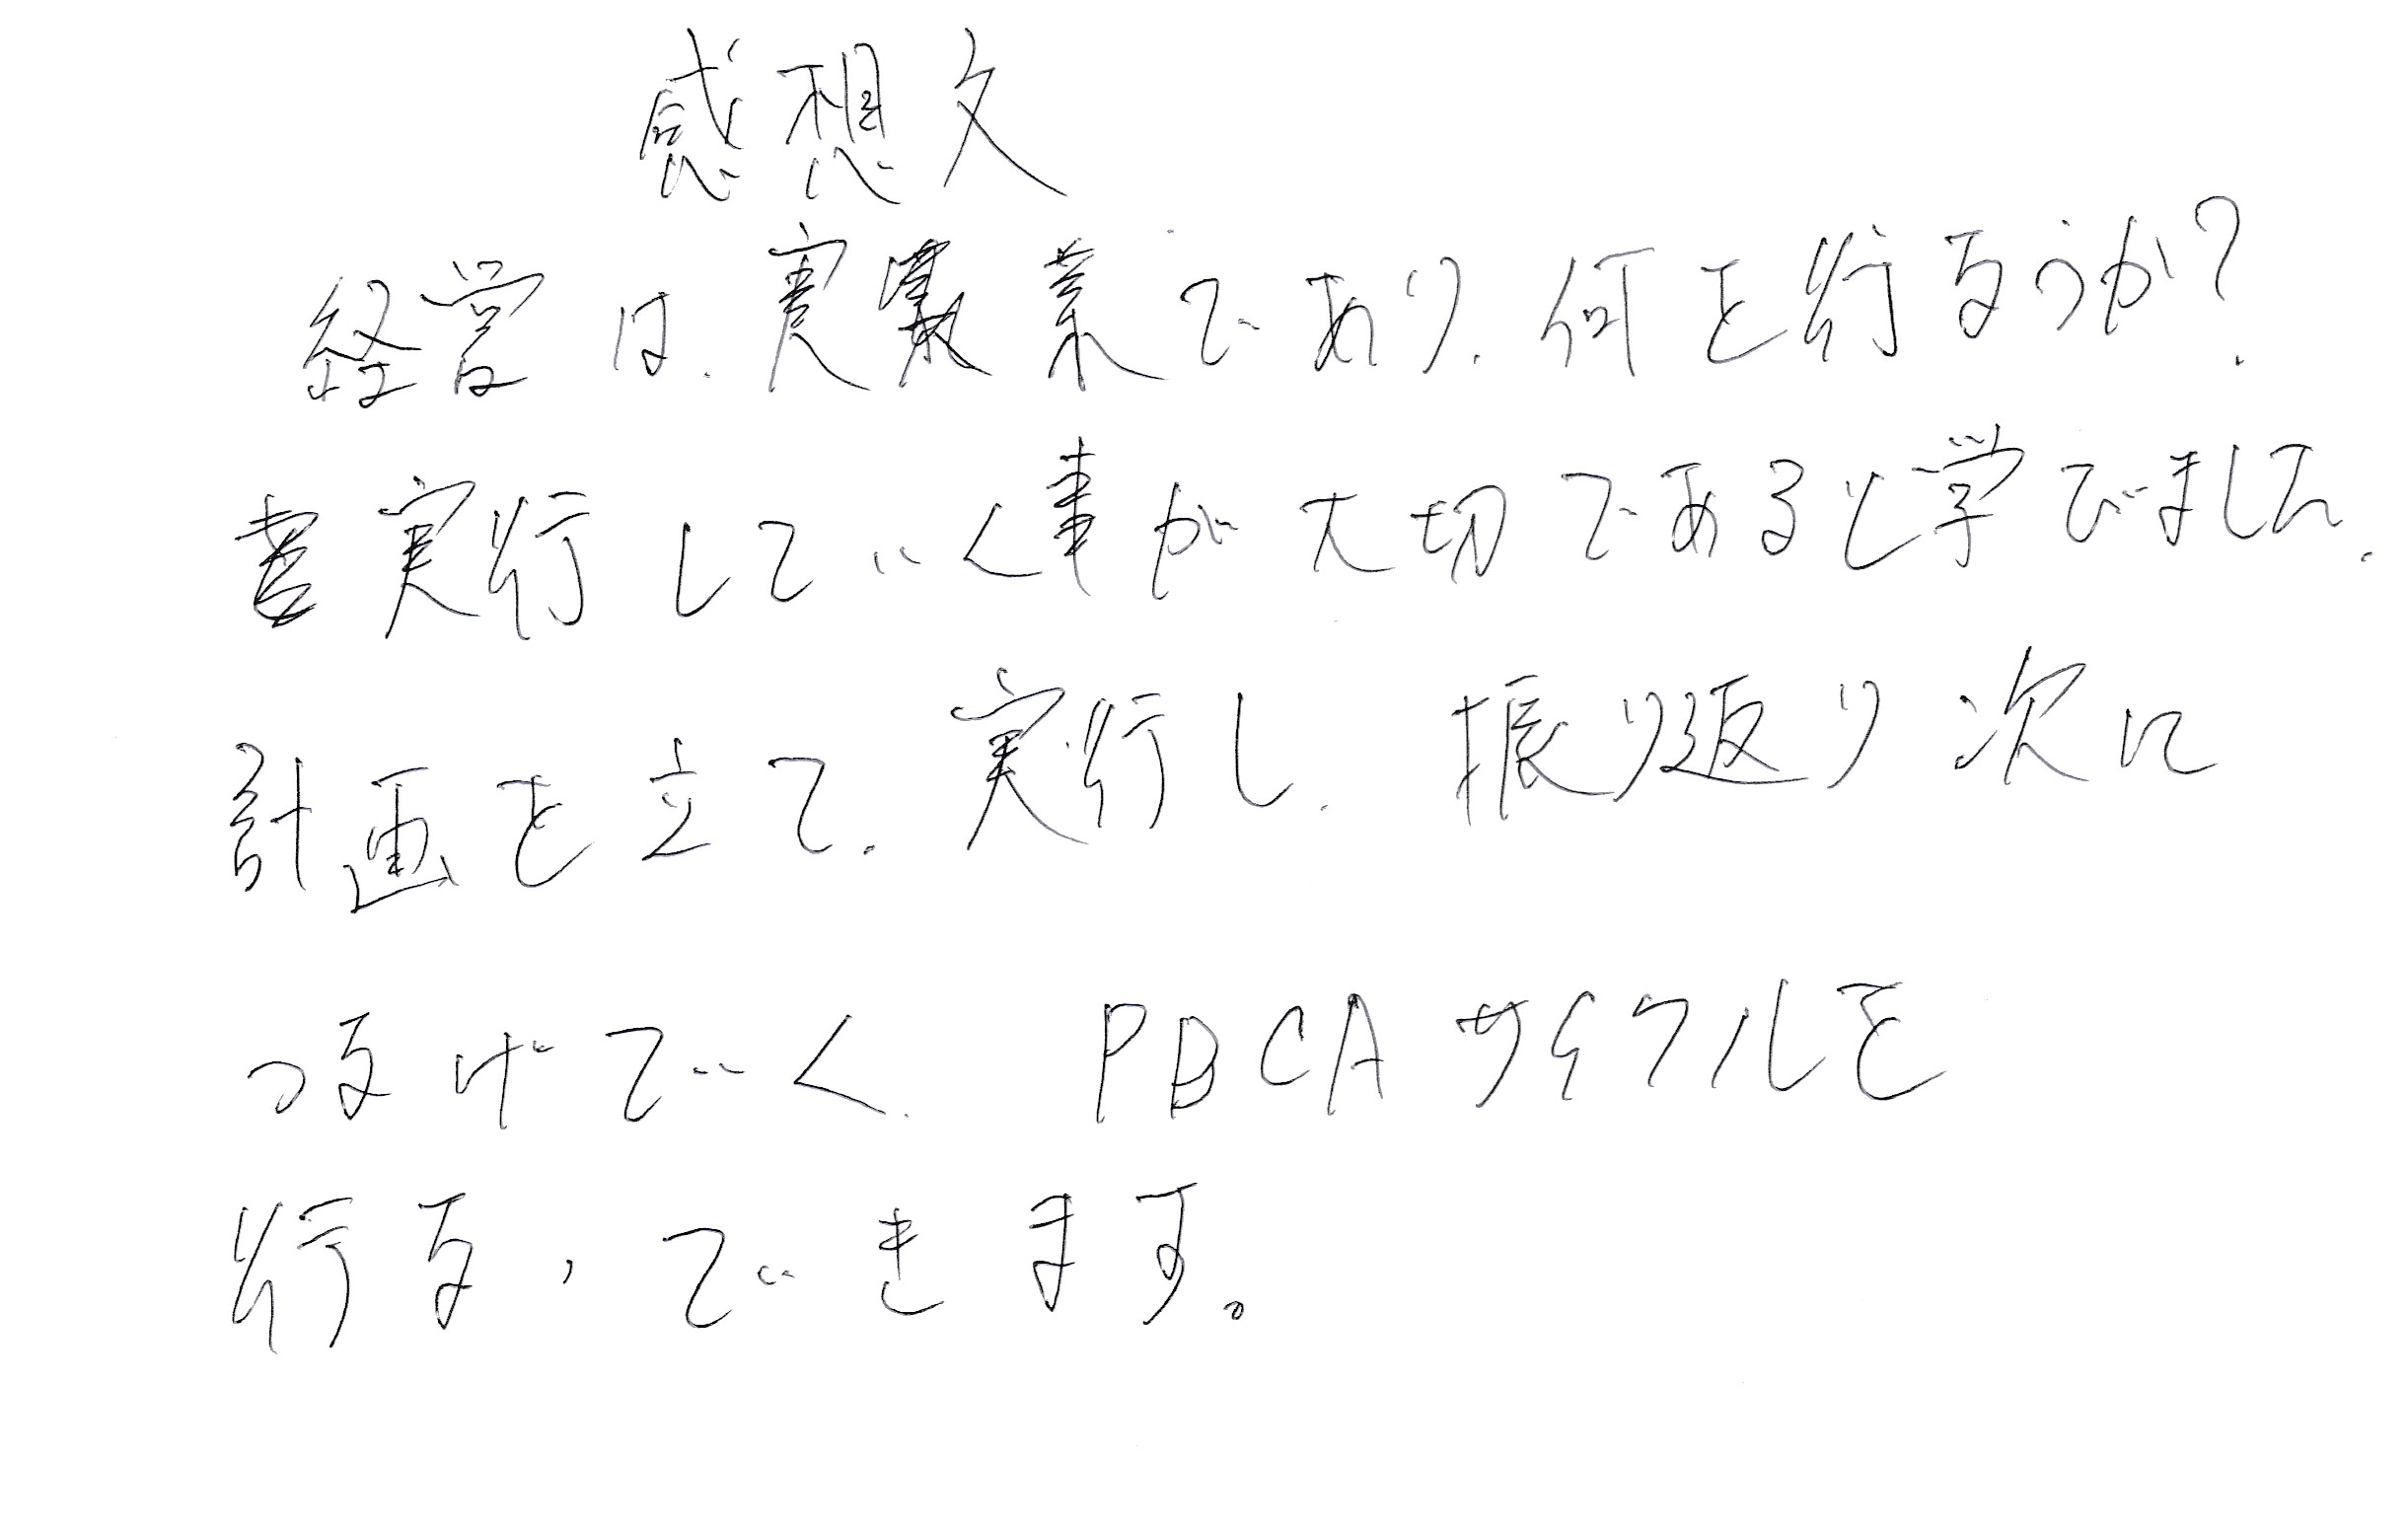 感想文
経営は、実業であり、何を行なうか?、
実行していく事が大切であると学びました、
計画を立て、実行し、振り返り次に
つなげていく、PDCAサイクルを
行なっていきます。